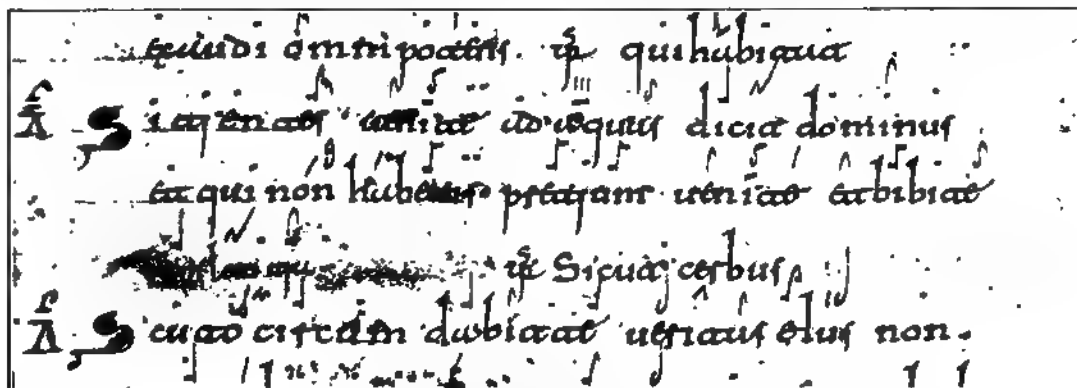 omnipotentis ℣ qui habitat
A Sitientes uenite ad aquas dicit dominus
et qui non habetis pretium uenite et bibite
℣ Sicut cerbus
A Scuto circumdabit te ueritas eius non